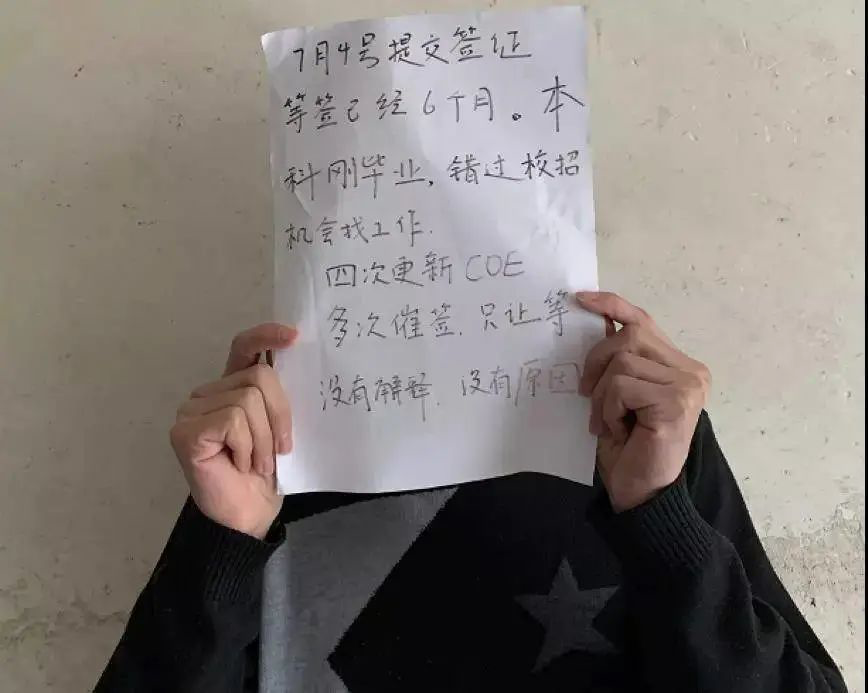 7月4号提交签证
等签已经6个月。本
科刚毕业,错过校招
机会找工作.
四次更新COE
多次催签.只让等
没有解释.没有原因